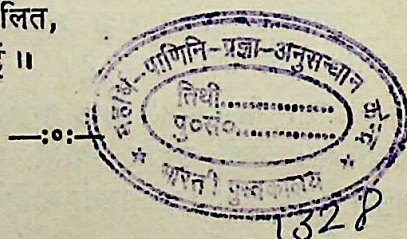 लित,
॥
—:०:—
महर्षि-पाणिनि-प्रज्ञा-अनुसन्धान केन्द्र
तिथी..............
पु०सं०..............
* भारती पुस्तकालय *
1328